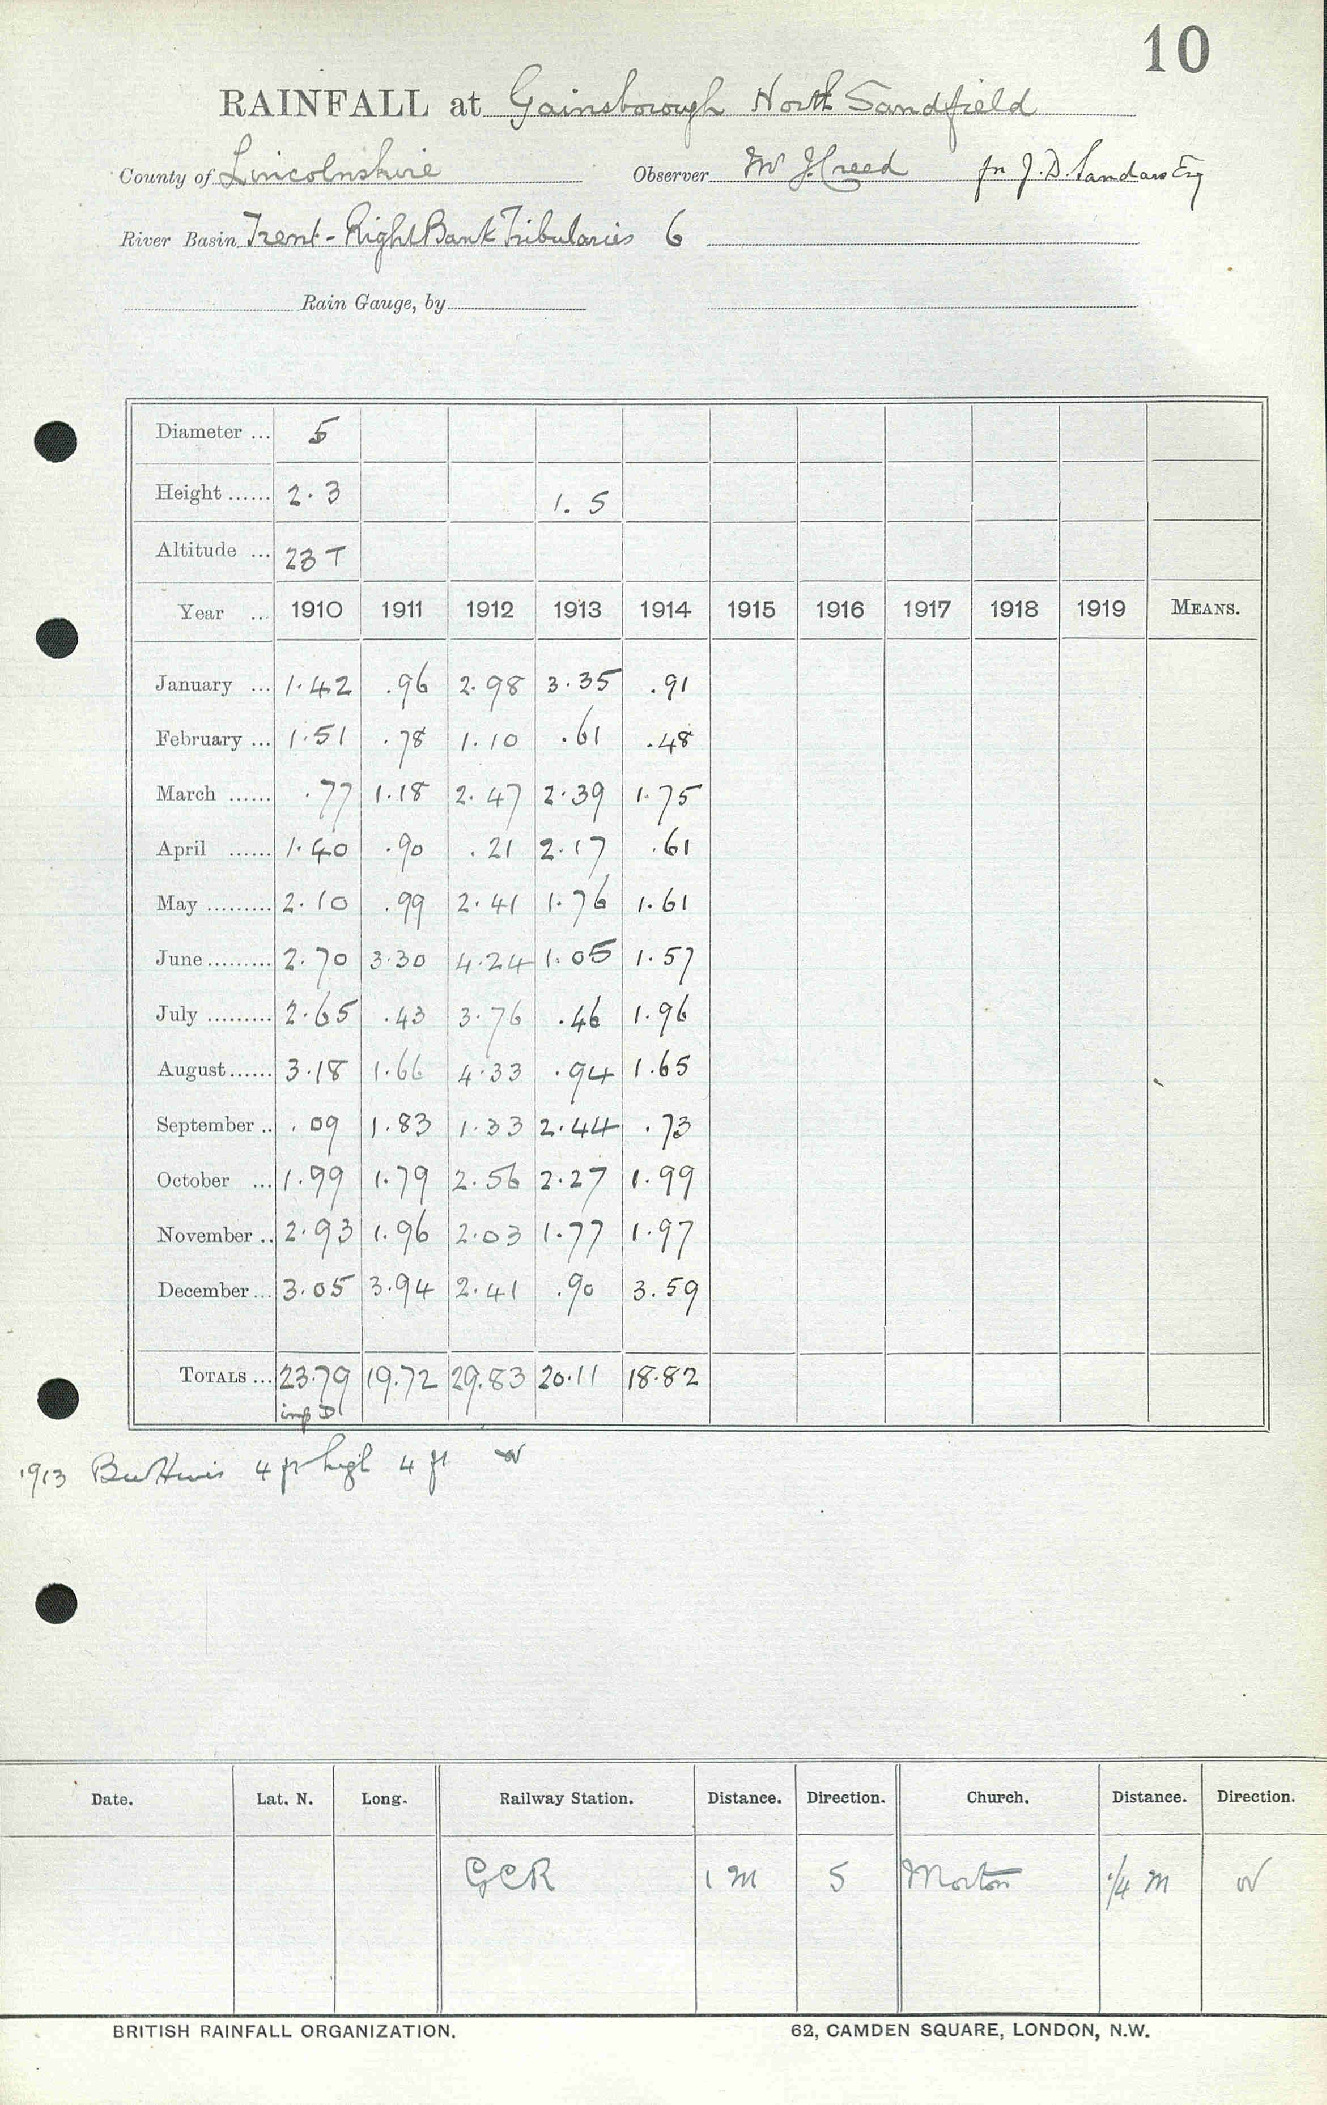 10
RAINFALL at Gainsborough North Sandfield
County of Lincolnshire Observer Mr J. Creed for J. D. Sandars Esq
River Basin Trent - Right Bank Tributaries 6
Rain Gauge, by
Diameter ... 5
Height ...... 2.3 1.5
Altitude ... 23 T
Year ... 1910 1911 1912 1913 1914 1915 1916 1917 1918 1919 MEANS.
January ... 1.42 .96 2.98 3.35 .91
February ... 1.51 .78 1.10 .61 .48
March ...... .77 1.18 2.47 2.39 1.75
April ...... 1.40 .90 .21 2.17 .61
May ......... 2.10 .99 2.41 1.76 1.61
June ......... 2.70 3.30 4.24 1.05 1.57
July ......... 2.65 .43 3.76 .46 1.96
August ...... 3.18 1.66 4.33 .94 1.65
September .. .09 1.83 1.33 2.44 .73
October ... 1.99 1.79 2.56 2.27 1.99
November .. 2.93 1.96 2.03 1.77 1.97
December ... 3.05 3.94 2.41 .90 3.59
TOTALS ... 23.79 19.72 29.83 20.11 18.82
1913 4 ft high 4 ft W
Date. Lat. N. Long. Railway Station. Distance. Direction. Church. Distance. Direction.
GCR 1 M S Morton 1/4 M W
BRITISH RAINFALL ORGANIZATION. 62, CAMDEN SQUARE, LONDON, N.W.